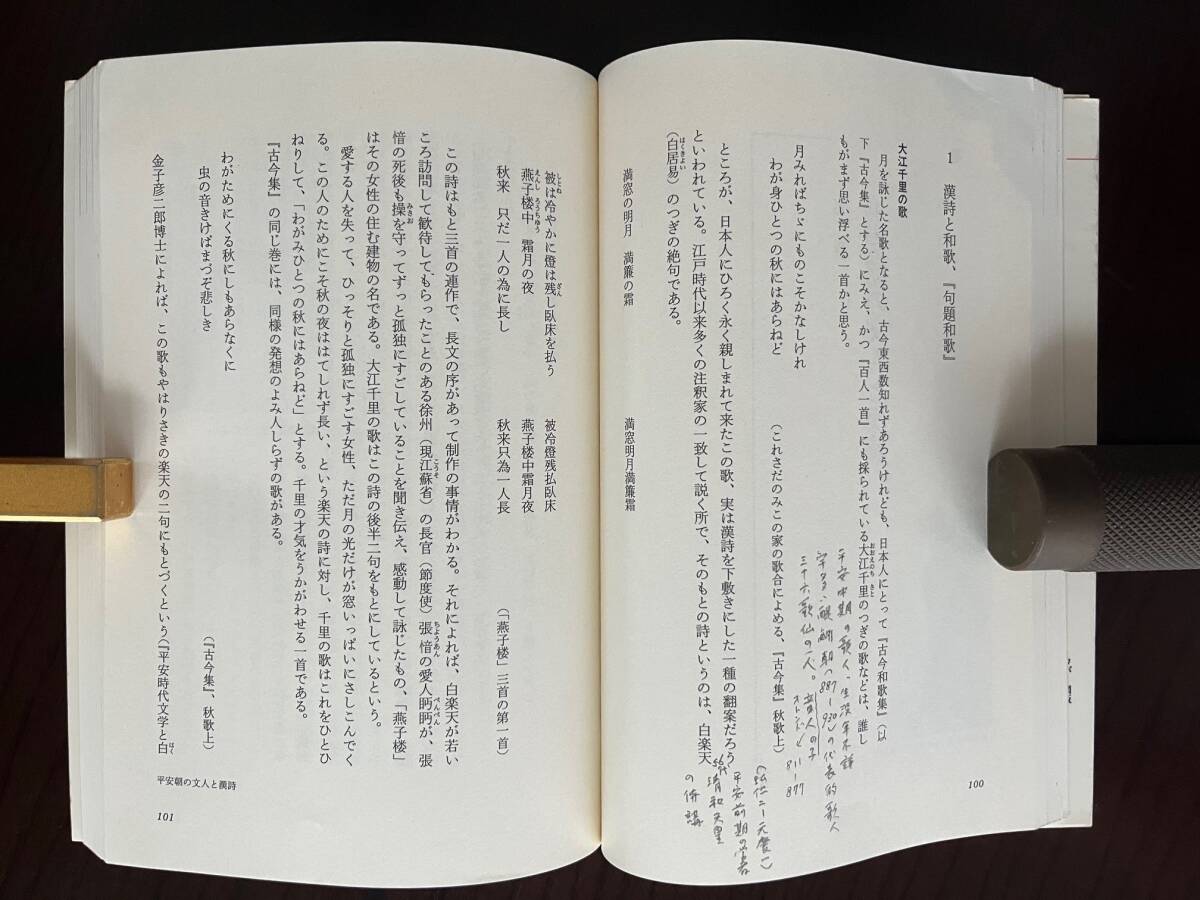 1 漢詩と和歌、『句題和歌』
大江千里の歌
月を詠じた名歌となると、古今東西数知れずあろうけれども、日本人にとって『古今和歌集』(以
下『古今集』とする)にみえ、かつ『百人一首』にも採られている大江千里のつぎの歌などは、誰し
もがまず思い浮べる一首かと思う。
月みればちゞにものこそかなしけれ
わが身ひとつの秋にはあらねど
(これさだのみこの家の歌合によめる、『古今集』秋歌上)
ところが、日本人にひろく永く親しまれて来たこの歌、実は漢詩を下敷きにした一種の翻案だろう
といわれている。江戸時代以来多くの注釈家の一致して説く所で、そのもとの詩というのは、白楽天
(白居易)のつぎの絶句である。
満窓の明月 満簾の霜 満窓明月満簾霜
平安中期の歌人、生没年不詳
宇多、醍醐朝(887-930)の代表的歌人
三十六歌仙の一人。音人の子
811-877
(弘仁二-元慶一)
平安前期の
56代 清和天皇
の侍講
100
被は冷やかに燈は残し臥床を払う 被冷燈残払臥床
燕子楼中 霜月の夜 燕子楼中霜月夜
秋来 只だ一人の為に長し 秋来只為一人長
(「燕子楼」三首の第一首)
この詩はもと三首の連作で、長文の序があって制作の事情がわかる。それによれば、白楽天が若い
ころ訪問して歓待してもらったことのある徐州(現江蘇省)の長官(節度使)張愔の愛人眄眄が、張
愔の死後も操を守ってずっと孤独にすごしていることを聞き伝え、感動して詠じたもの、「燕子楼」
はその女性の住む建物の名である。大江千里の歌はこの詩の後半二句をもとにしているという。
愛する人を失って、ひっそりと孤独にすごす女性、ただ月の光だけが窓いっぱいにさしこんでく
る。この人のためにこそ秋の夜ははてしれず長い、という楽天の詩に対し、千里の歌はこれをひとひ
ねりして、「わがみひとつの秋にはあらねど」とする。千里の才気をうかがわせる一首である。
『古今集』の同じ巻には、同様の発想のよみ人しらずの歌がある。
わがためにくる秋にしもあらなくに
虫の音きけばまづぞ悲しき
(『古今集』、秋歌上)
金子彦二郎博士によれば、この歌もやはりさきの楽天の二句にもとづくという(『平安時代文学と白
平安朝の文人と漢詩
101